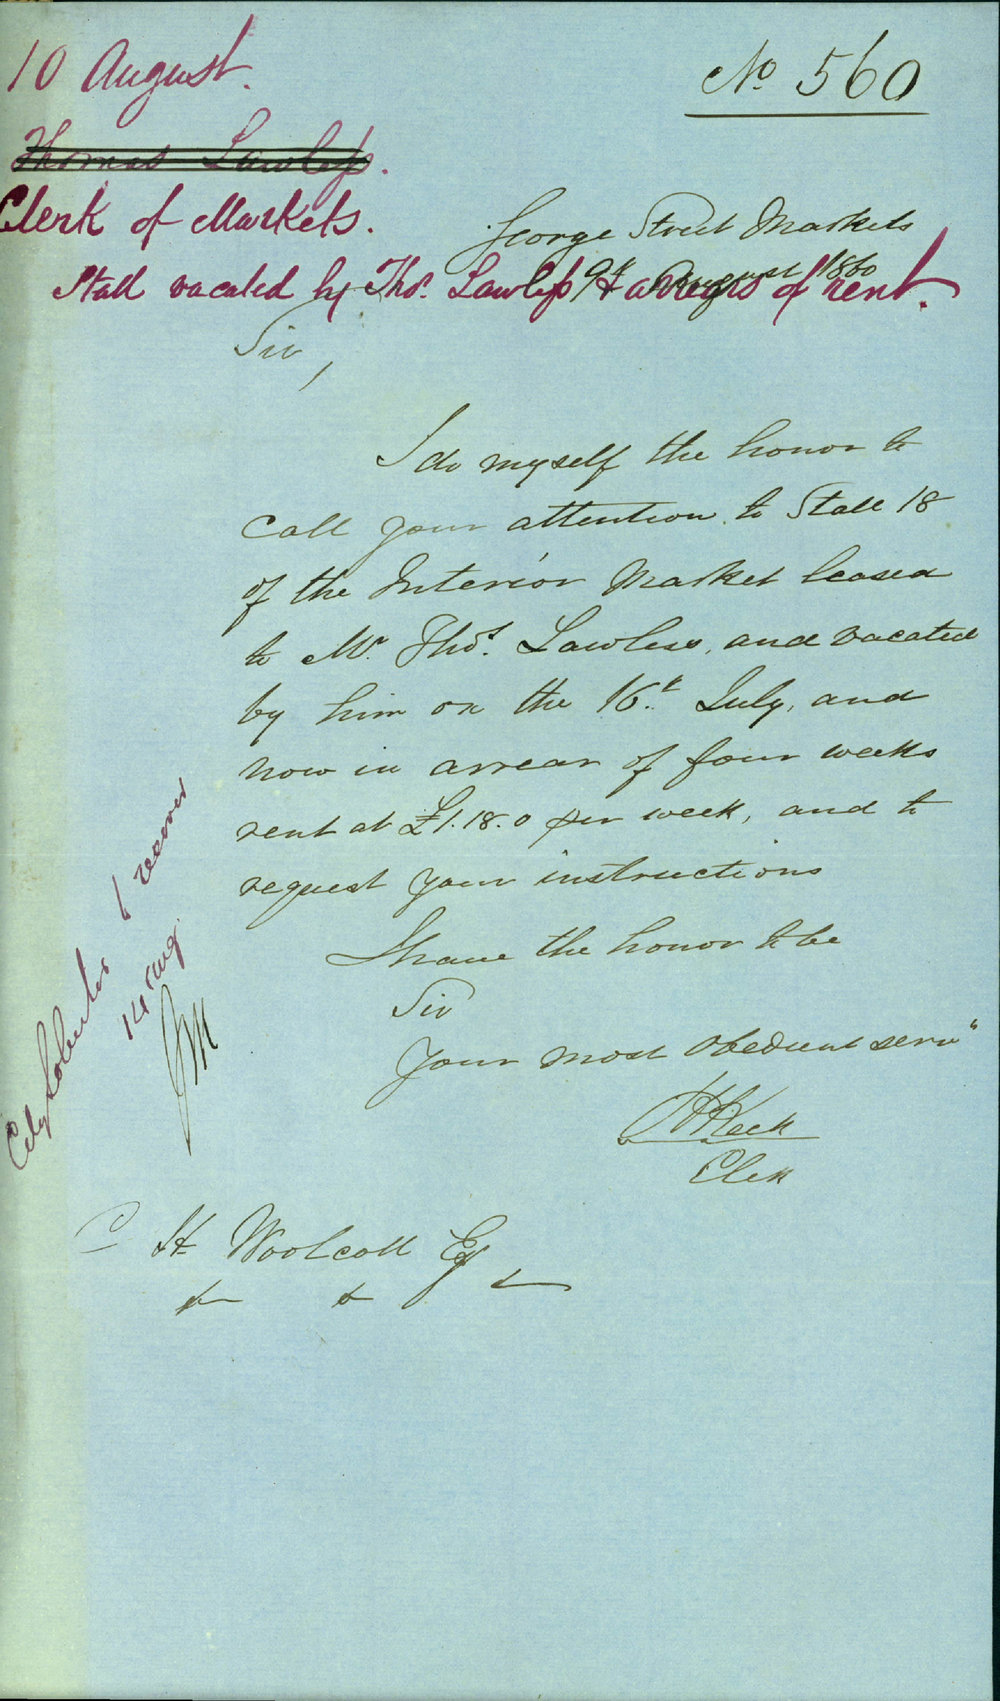 10 August.
No 560
Thomas Lawless.
Clerk of Markets.
George Street Markets
9th August 1860
Stall vacated by Thos. Lawless & arrears of rent.
Sir,
I do myself the honor to
call your attention to Stall 18
of the Interior Market leased
to Mr. Thos. Lawless, and vacated
by him on the 16th July, and
now in arrear of four weeks
rent at £1.18.0 per week, and to
request your instructions
I have the honor to be
Sir
Your most obedient serv"
Clerk
City Solicitor to recover
14 Aug
JM
H Woolcott Esq